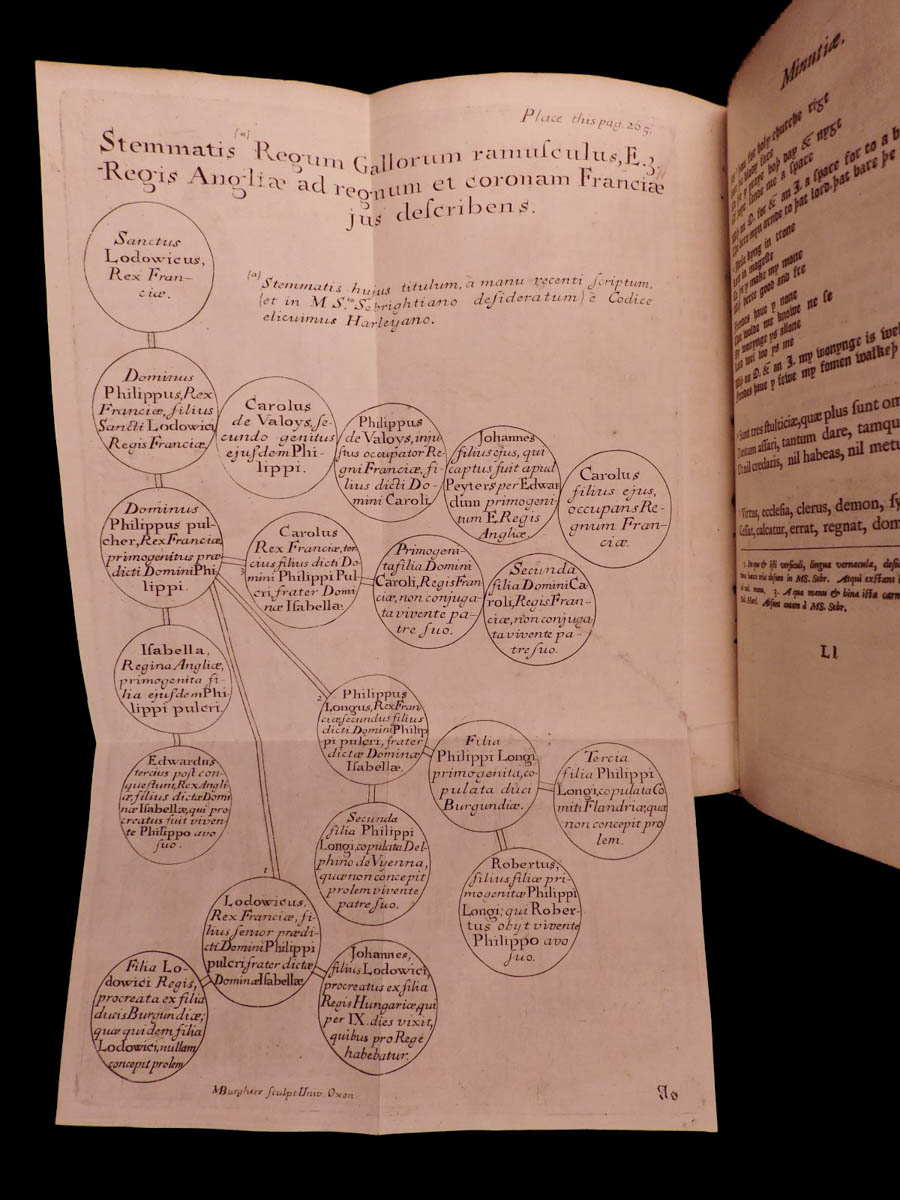 Place this pag. 265.
Stemmatis (a) Regum Gallorum ramusculus, E. 3.
-Regis Angliæ ad regnum et coronam Franciæ
jus describens.
(a) Stemmatis hujus titulum, à manu recenti scriptum,
(et in MSto. Sebrightiano desideratum) è Codice
elicuimus Harleyano.
Sanctus
Lodowicus,
Rex Fran-
ciæ.
Dominus
Philippus, Rex
Franciæ, filius
Sancti Lodowici
Regis Franciæ
Carolus
de Valoys, se-
cundo genitus
ejusdem Phi-
lippi.
Philippus
de Valoys, inju
stus occupator Re-
gni Franciæ, fi-
lius dicti Do-
mini Caroli
Johannes
filius ejus, qui
captus fuit apud
Peyters per Edwar
dum primogeni-
tum E. Regis
Angliæ.
Carolus
filius ejus,
occupans Re-
gnum Fran-
ciæ.
Dominus
Philippus pul-
cher, Rex Franciæ,
primogenitus præ-
dicti Domini Phi
lippi.
3
Carolus
Rex Franciæ, ter-
cius filius dicti Do-
mini Philippi Pul
cri, frater Domi-
næ Isabellæ.
Primogeni-
ta filia Domini
Caroli, Regis Fran
ciæ, non conjuga-
ta vivente pa-
tre suo.
Secunda
filia Domini Ca-
roli, Regis Fran-
ciæ, non conjuga
ta vivente pa-
tre suo.
Isabella,
Regina Angliæ,
primogenita fi-
lia ejusdem Phi-
lippi pulcri.
2
Philippus
Longus, Rex Fran
ciæ, secundus filius
dicti Domini Philip
pi pulcri, frater
dictæ Dominæ
Isabellæ.
Filia
Philippi Longi
primogenita, co-
pulata duci
Burgundiæ.
Tercia
filia Philippi
Longi, copulata Co
miti Flandriæ, quæ
non concepit pro
lem.
Edwardus
tercius post con-
questum, Rex Angli
æ, filius dictæ Domi
næ Isabellæ, qui pro
creatus fuit viven-
te Philippo avo
suo.
Secunda
filia Philippi
Longi, copulata Del-
phino de Vyenna,
quæ non concepit
prolem vivente
patre suo.
Robertus,
filius filiæ pri-
mogenitæ Philippi
Longi; qui Rober-
tus obyt vivente
Philippo avo
suo.
1
Lodowicus,
Rex Franciæ, fi-
lius senior prædi-
cti Domini Philippi
pulcri frater dictæ
Dominæ Isabellæ
Filia Lo-
dowici Regis,
procreata ex filia
ducis Burgundiæ;
quæ quidem filia
Lodowici, nullam
concepit prolem
Johannes,
filius Lodowici,
procreatus ex filia
Regis Hungariæ, qui
per IX. dies vixit,
quibus pro Rege
habebatur.
MBurghers sculpt Univ. Oxon.
No
Minutiæ.
for holy churche rigt
day & nygt
me a space
an D. for & an J. a space for to a b
myn arnde to þat lord þat bare þe
dyng in trone
in mageste
y make my mone
good and fre
haue y none
wolde me knowe ne se
wonynge ys allone
wel wo ys me
an D. & an J. my wonynge is wel
haue y fewe my fomen walkeþ
Sunt tres stulticiæ, quæ plus sunt om
assari, tantum dare, tamqu
Ut nil credaris, nil habeas, nil metu
Virtus, ecclesia, clerus, demon, sy
Cessat, calcatur, errat, regnat, dom
versiculi, lingua vernacula, desi
in MS. Sebr. Atqui exstant i
3. A qua manu & bina ista carm
Harl. Absunt autem à MS. Sebr.
Ll